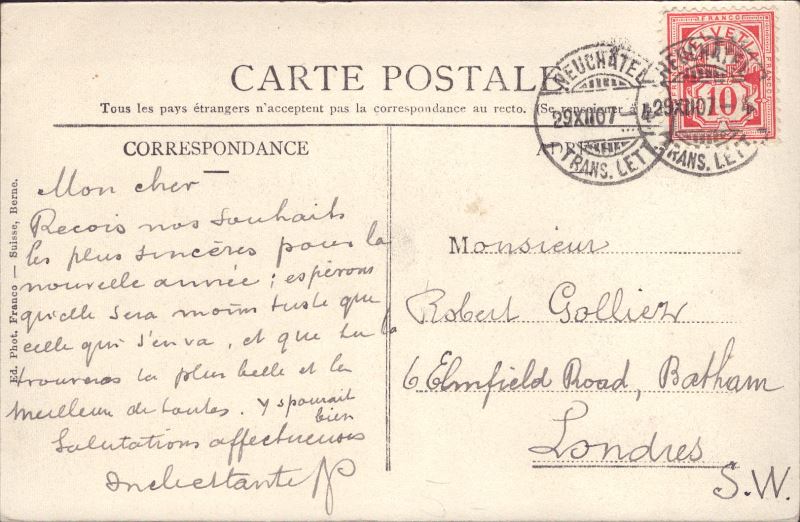 CARTE POSTALE
Tous les pays étrangers n'acceptent pas la correspondance au recto. (Se renseigner à
CORRESPONDANCE
Ed. Phot. Franco — Suisse, Berne.
Mon cher
Recois nos souhaits
les plus sincères pour la
nouvelle année ; espérons
qu'elle sera moins triste que
celle qui s'en va, et que tu la
trouveras la plus belle et la
meilleure de toutes.
Salutations affectueuses
FRANCO
HELVETIA
10
NEUCHATEL
29XII07 — 4
TRANS. LETT.
NEUCHATEL
29XII07 — 4
TRANS. LETT.
Monsieur
Robert Golliez
6 Elmfield Road, Balham
Londres
S.W.